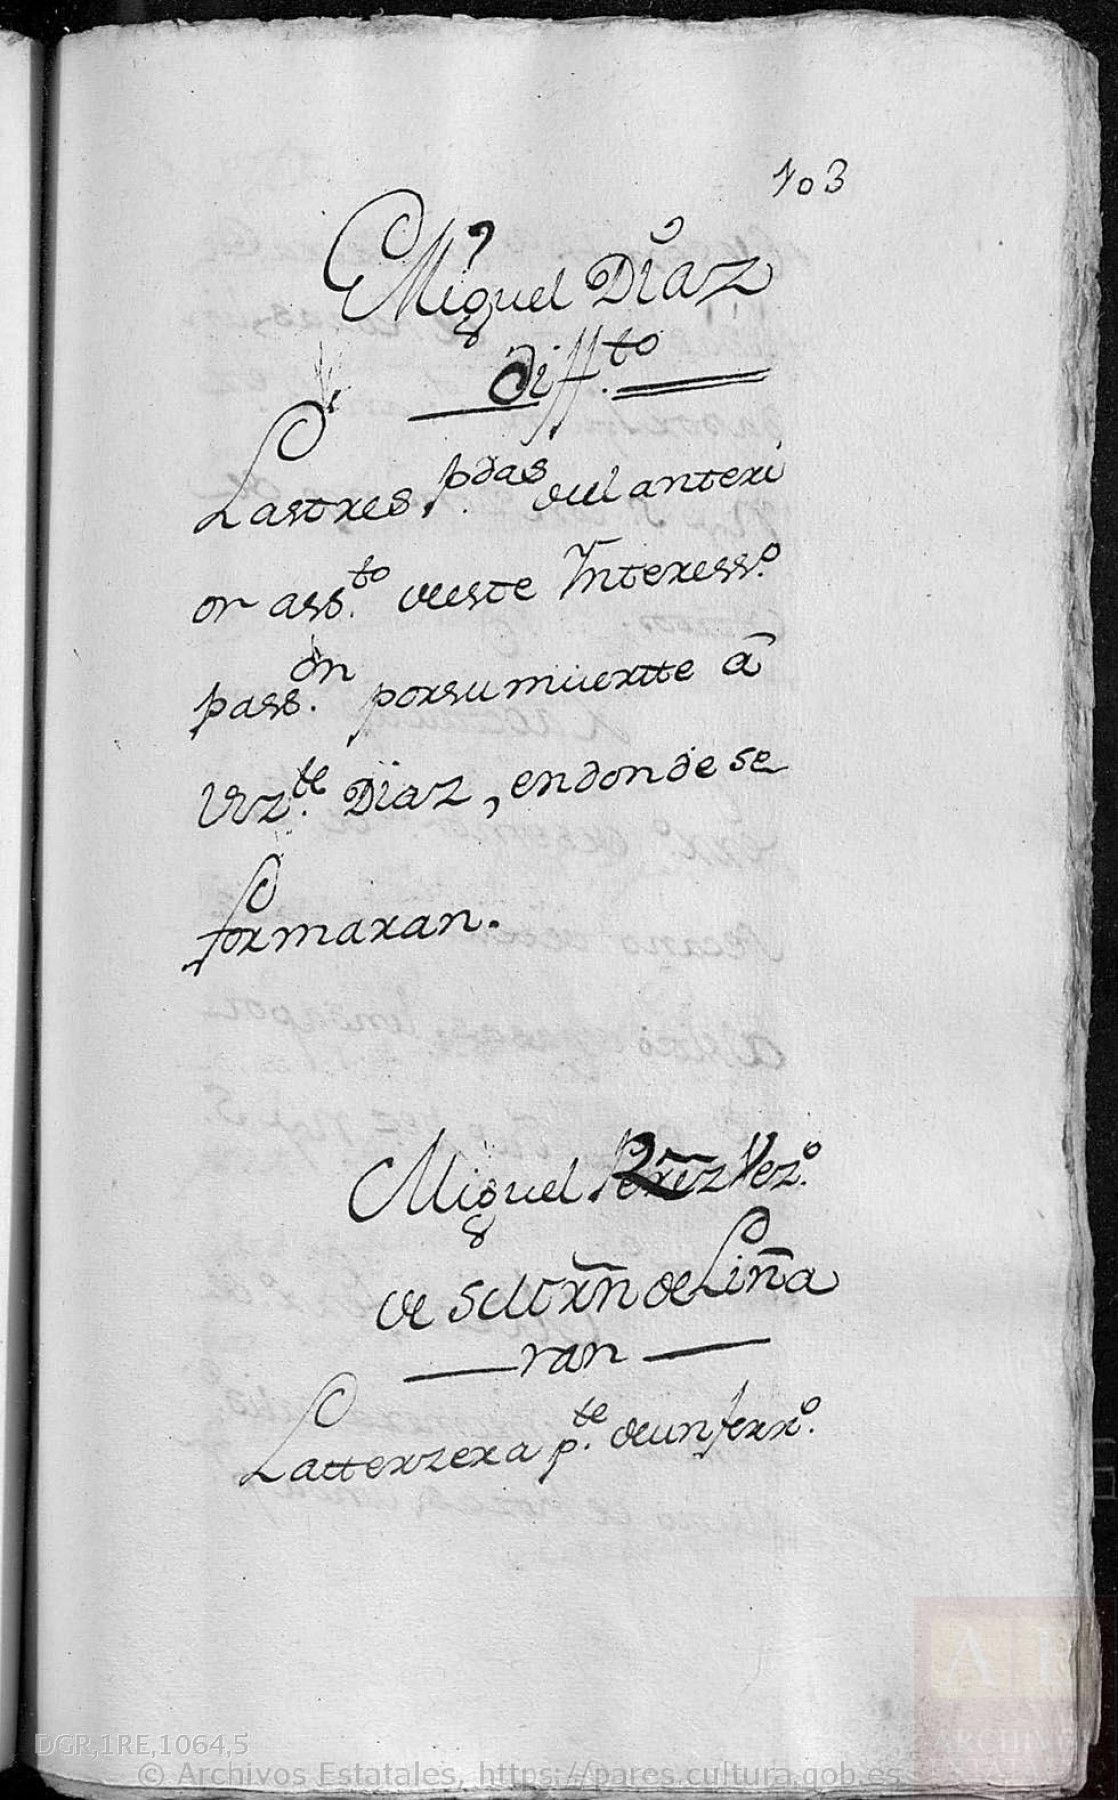 103
Miguel Diaz
diff.to
Lastres p.das del anteri
or ass.to deeste Interess.o
pass.on porsu muertte â
Viz.te Diaz, endonde se
formaran.
Miguel Perez Vez.o
de San de Liña
ran
Latterzera p.te deun ferr.o
DGR,1RE,1064,5
© Archivos Estatales, https://pares.cultura.gob.es